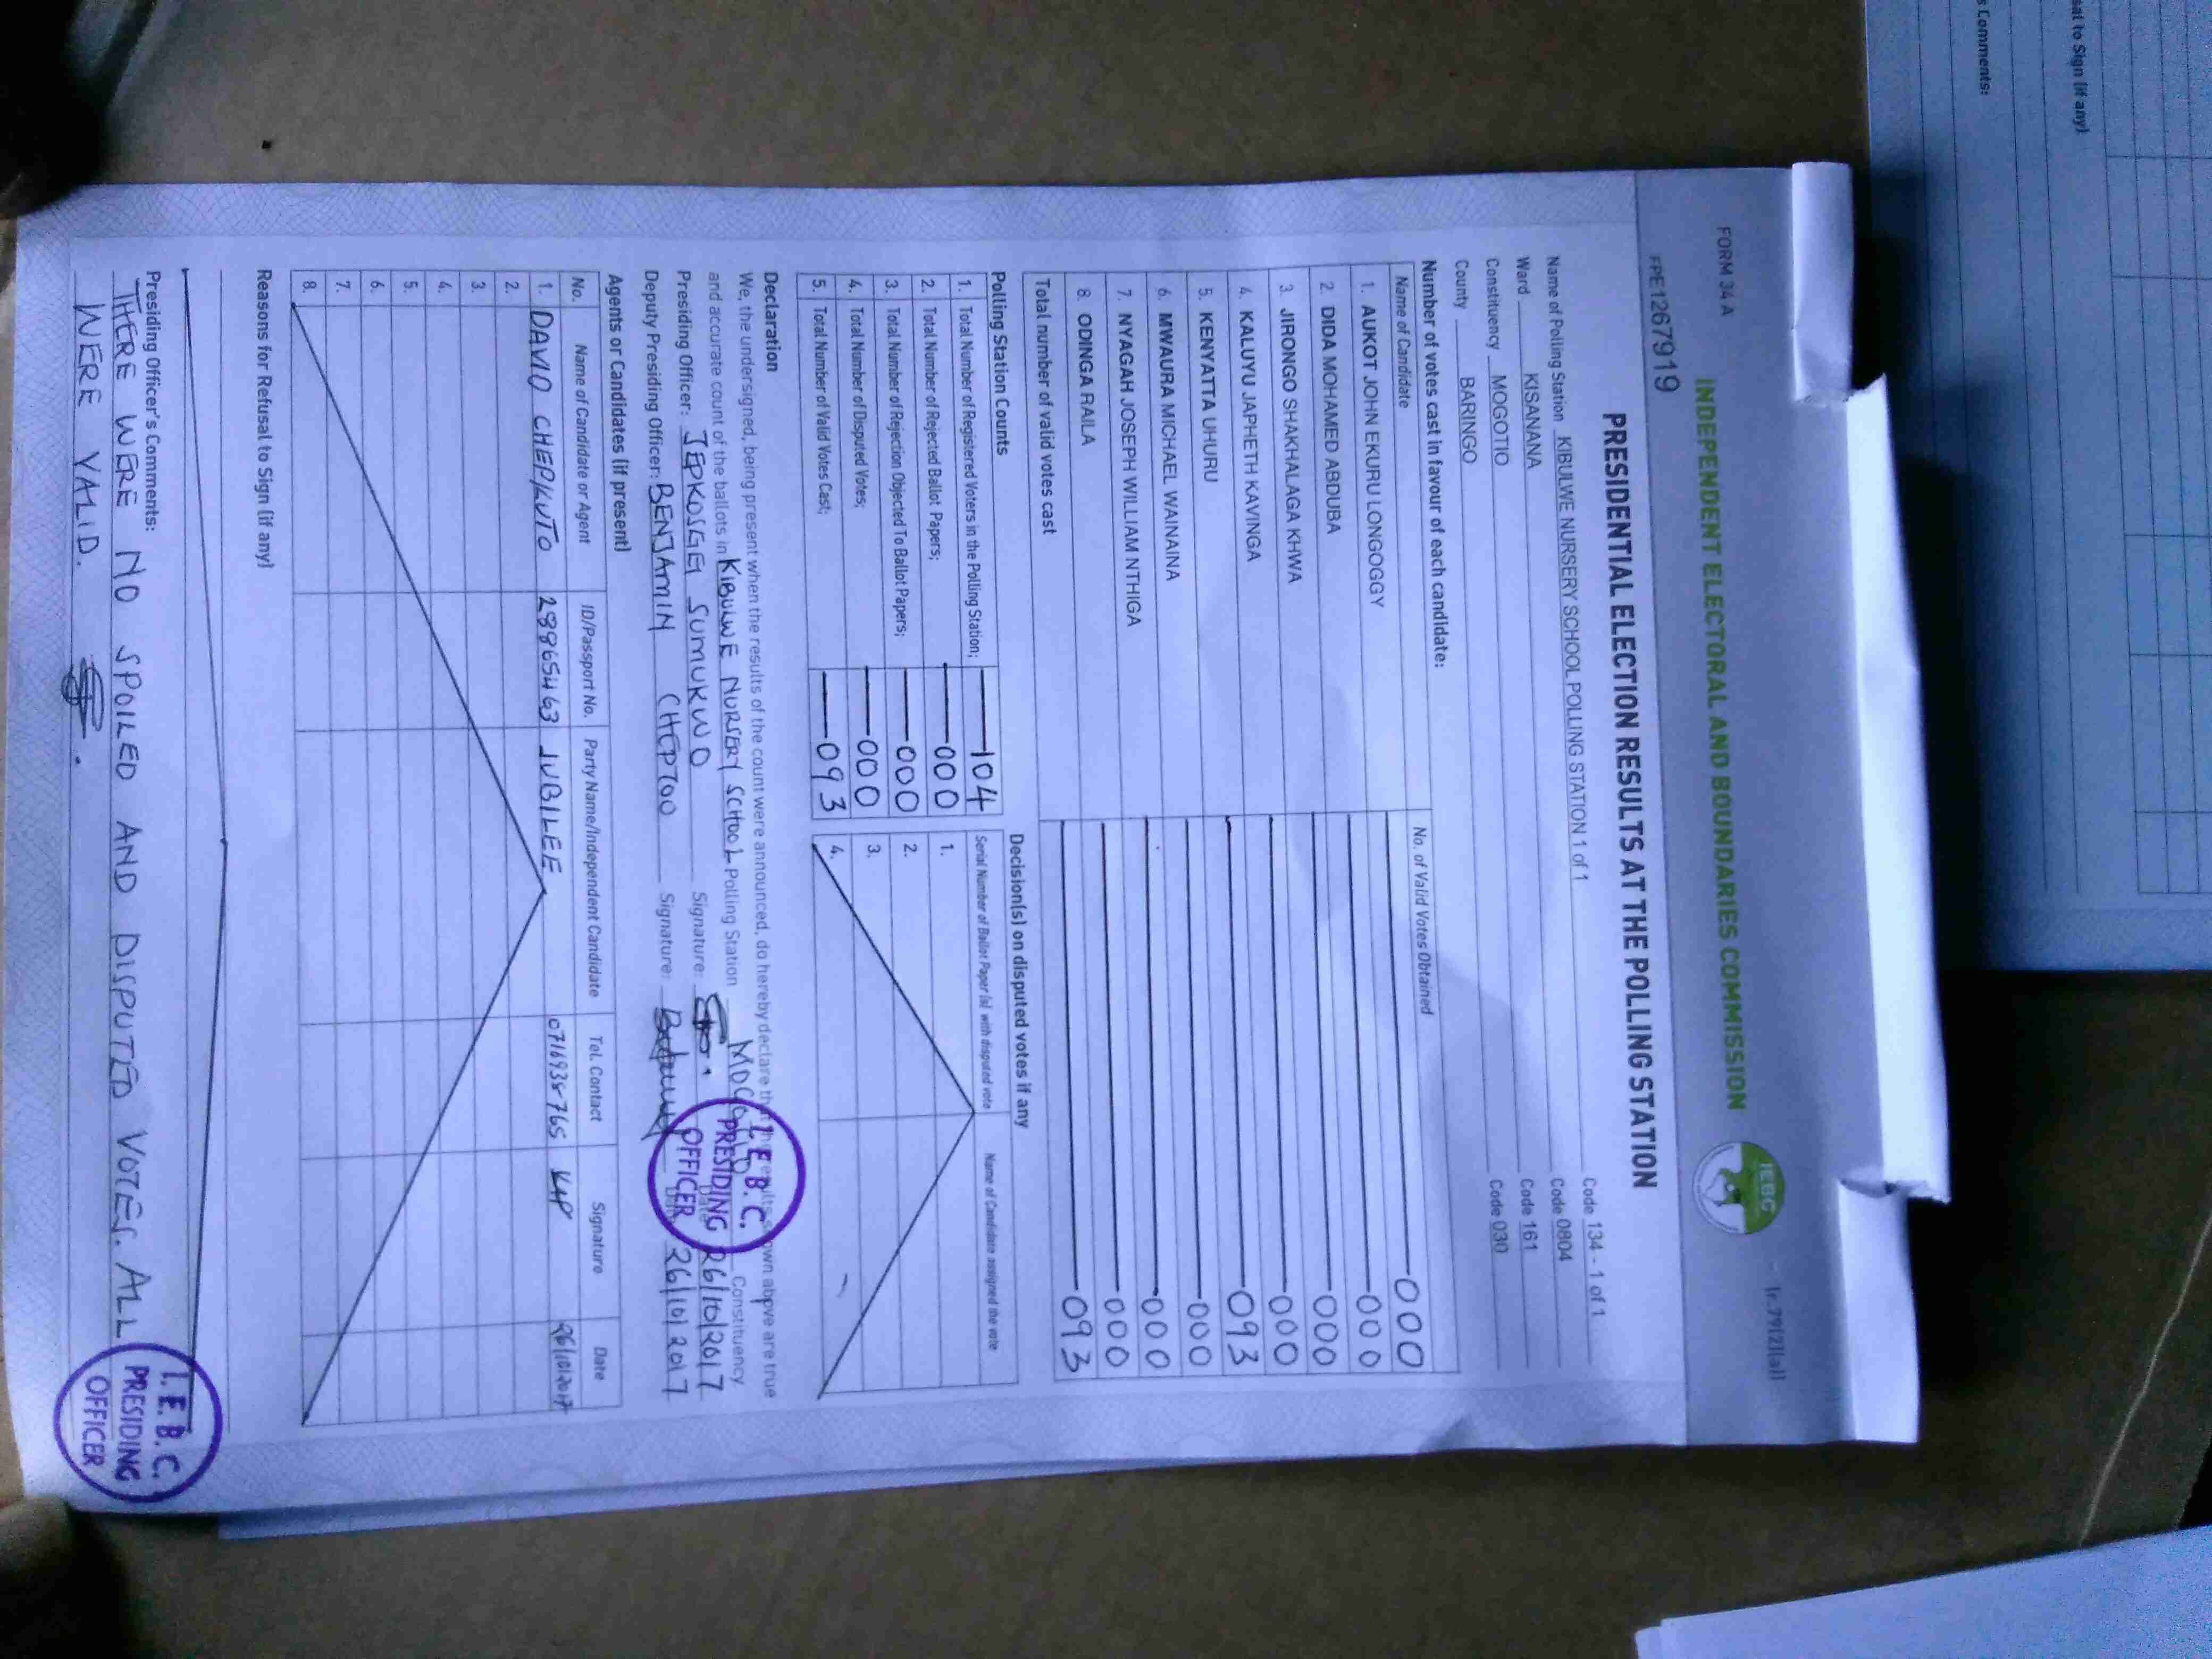 FORM 34 A
INDEPENDENT ELECTORAL AND BOUNDARIES COMMISSION
IEBC
(r.79(2)(a))
FPE1267919
PRESIDENTIAL ELECTION RESULTS AT THE POLLING STATION
Name of Polling Station KIBULWE NURSERY SCHOOL POLLING STATION 1 of 1 Code 134 - 1 of 1
Ward KISANANA Code 0804
Constituency MOGOTIO Code 161
County BARINGO Code 030
Number of votes cast in favour of each candidate:
Name of Candidate No. of Valid Votes Obtained
1. AUKOT JOHN EKURU LONGOGGY 000
2. DIDA MOHAMED ABDUBA 000
3. JIRONGO SHAKHALAGA KHWA 000
4. KALUYU JAPHETH KAVINGA 000
5. KENYATTA UHURU 093
6. MWAURA MICHAEL WAINAINA 000
7. NYAGAH JOSEPH WILLIAM NTHIGA 000
8. ODINGA RAILA 000
Total number of valid votes cast 093
Polling Station Counts
1. Total Number of Registered Voters in the Polling Station; 104
2. Total Number of Rejected Ballot Papers; 000
3. Total Number of Rejection Objected To Ballot Papers; 000
4. Total Number of Disputed Votes; 000
5. Total Number of Valid Votes Cast; 093
Decision(s) on disputed votes if any
Serial Number of Ballot Paper (s) with disputed vote Name of Candidate assigned the vote
1.
2.
3.
4.
Declaration
We, the undersigned, being present when the results of the count were announced, do hereby declare that the results shown above are true
and accurate count of the ballots in KIBULWE NURSERY SCHOOL Polling Station Constituency
Presiding Officer: JEPKOSGEI SUMUKWO Signature: Date 26/10/2017
Deputy Presiding Officer: BENJAMIN CHEPTOO Signature: Date 26/10/2017
I.E.B.C.
PRESIDING
OFFICER
Agents or Candidates (if present)
No. Name of Candidate or Agent ID/Passport No. Party Name/Independent Candidate Tel. Contact Signature Date
1. DAVID CHEPKUTO 28865463 JUBILEE 0716938765 26/10/2017
2.
3.
4.
5.
6.
7.
8.
Reasons for Refusal to Sign (if any)
Presiding Officer's Comments:
THERE WERE NO SPOILED AND DISPUTED VOTES. ALL
WERE VALID.
I.E.B.C.
PRESIDING
OFFICER
sat to Sign (if any)
s Comments: